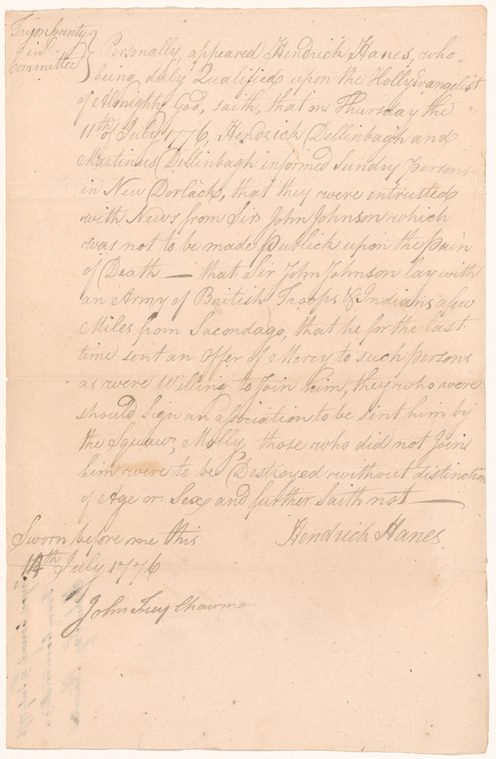 Tryon County
in
Committee
Personally appeared Hendrick Hanes, who
being duly Qualified upon the Holly Evangelist
of Almighty God, saith, that on Thursday the
11th of July 1776, Hendrick Dellinbagh and
Martinus Dellinbagh informed sundry persons
in New Dorlach, that they were intrusted
with News from Sir John Johnson which
was not to be made Publick upon the pain
of Death — that Sir John Johnson lay with
an Army of British Troops & Indians a few
Miles from Sacondago, that he for the last
time sent an Offer of Mercy to such persons
as were Willing to Join him, they who were
should Sign an association to be sent him by
the Squaw, Molly, those who did not Join
him were to be Destroyed without distinction
of Age or Sex and further saith not —
Hendrick Hanes
Sworn before me this
14th July 1776
John Frey Chairma